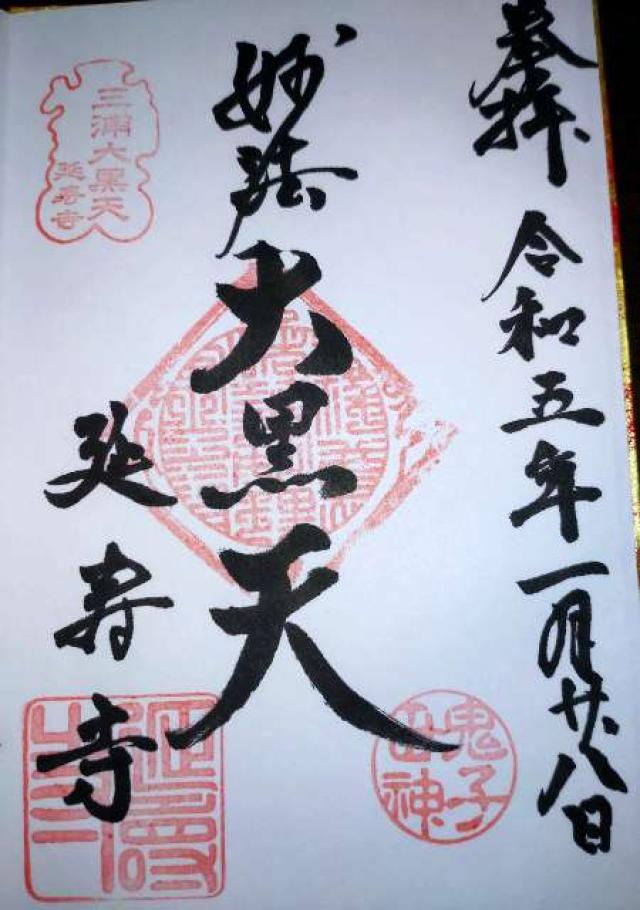 奉拝
令和五年一月廿八日
妙法
大黒天
延寿寺
三浦大黒天
延寿寺
鬼子
母神